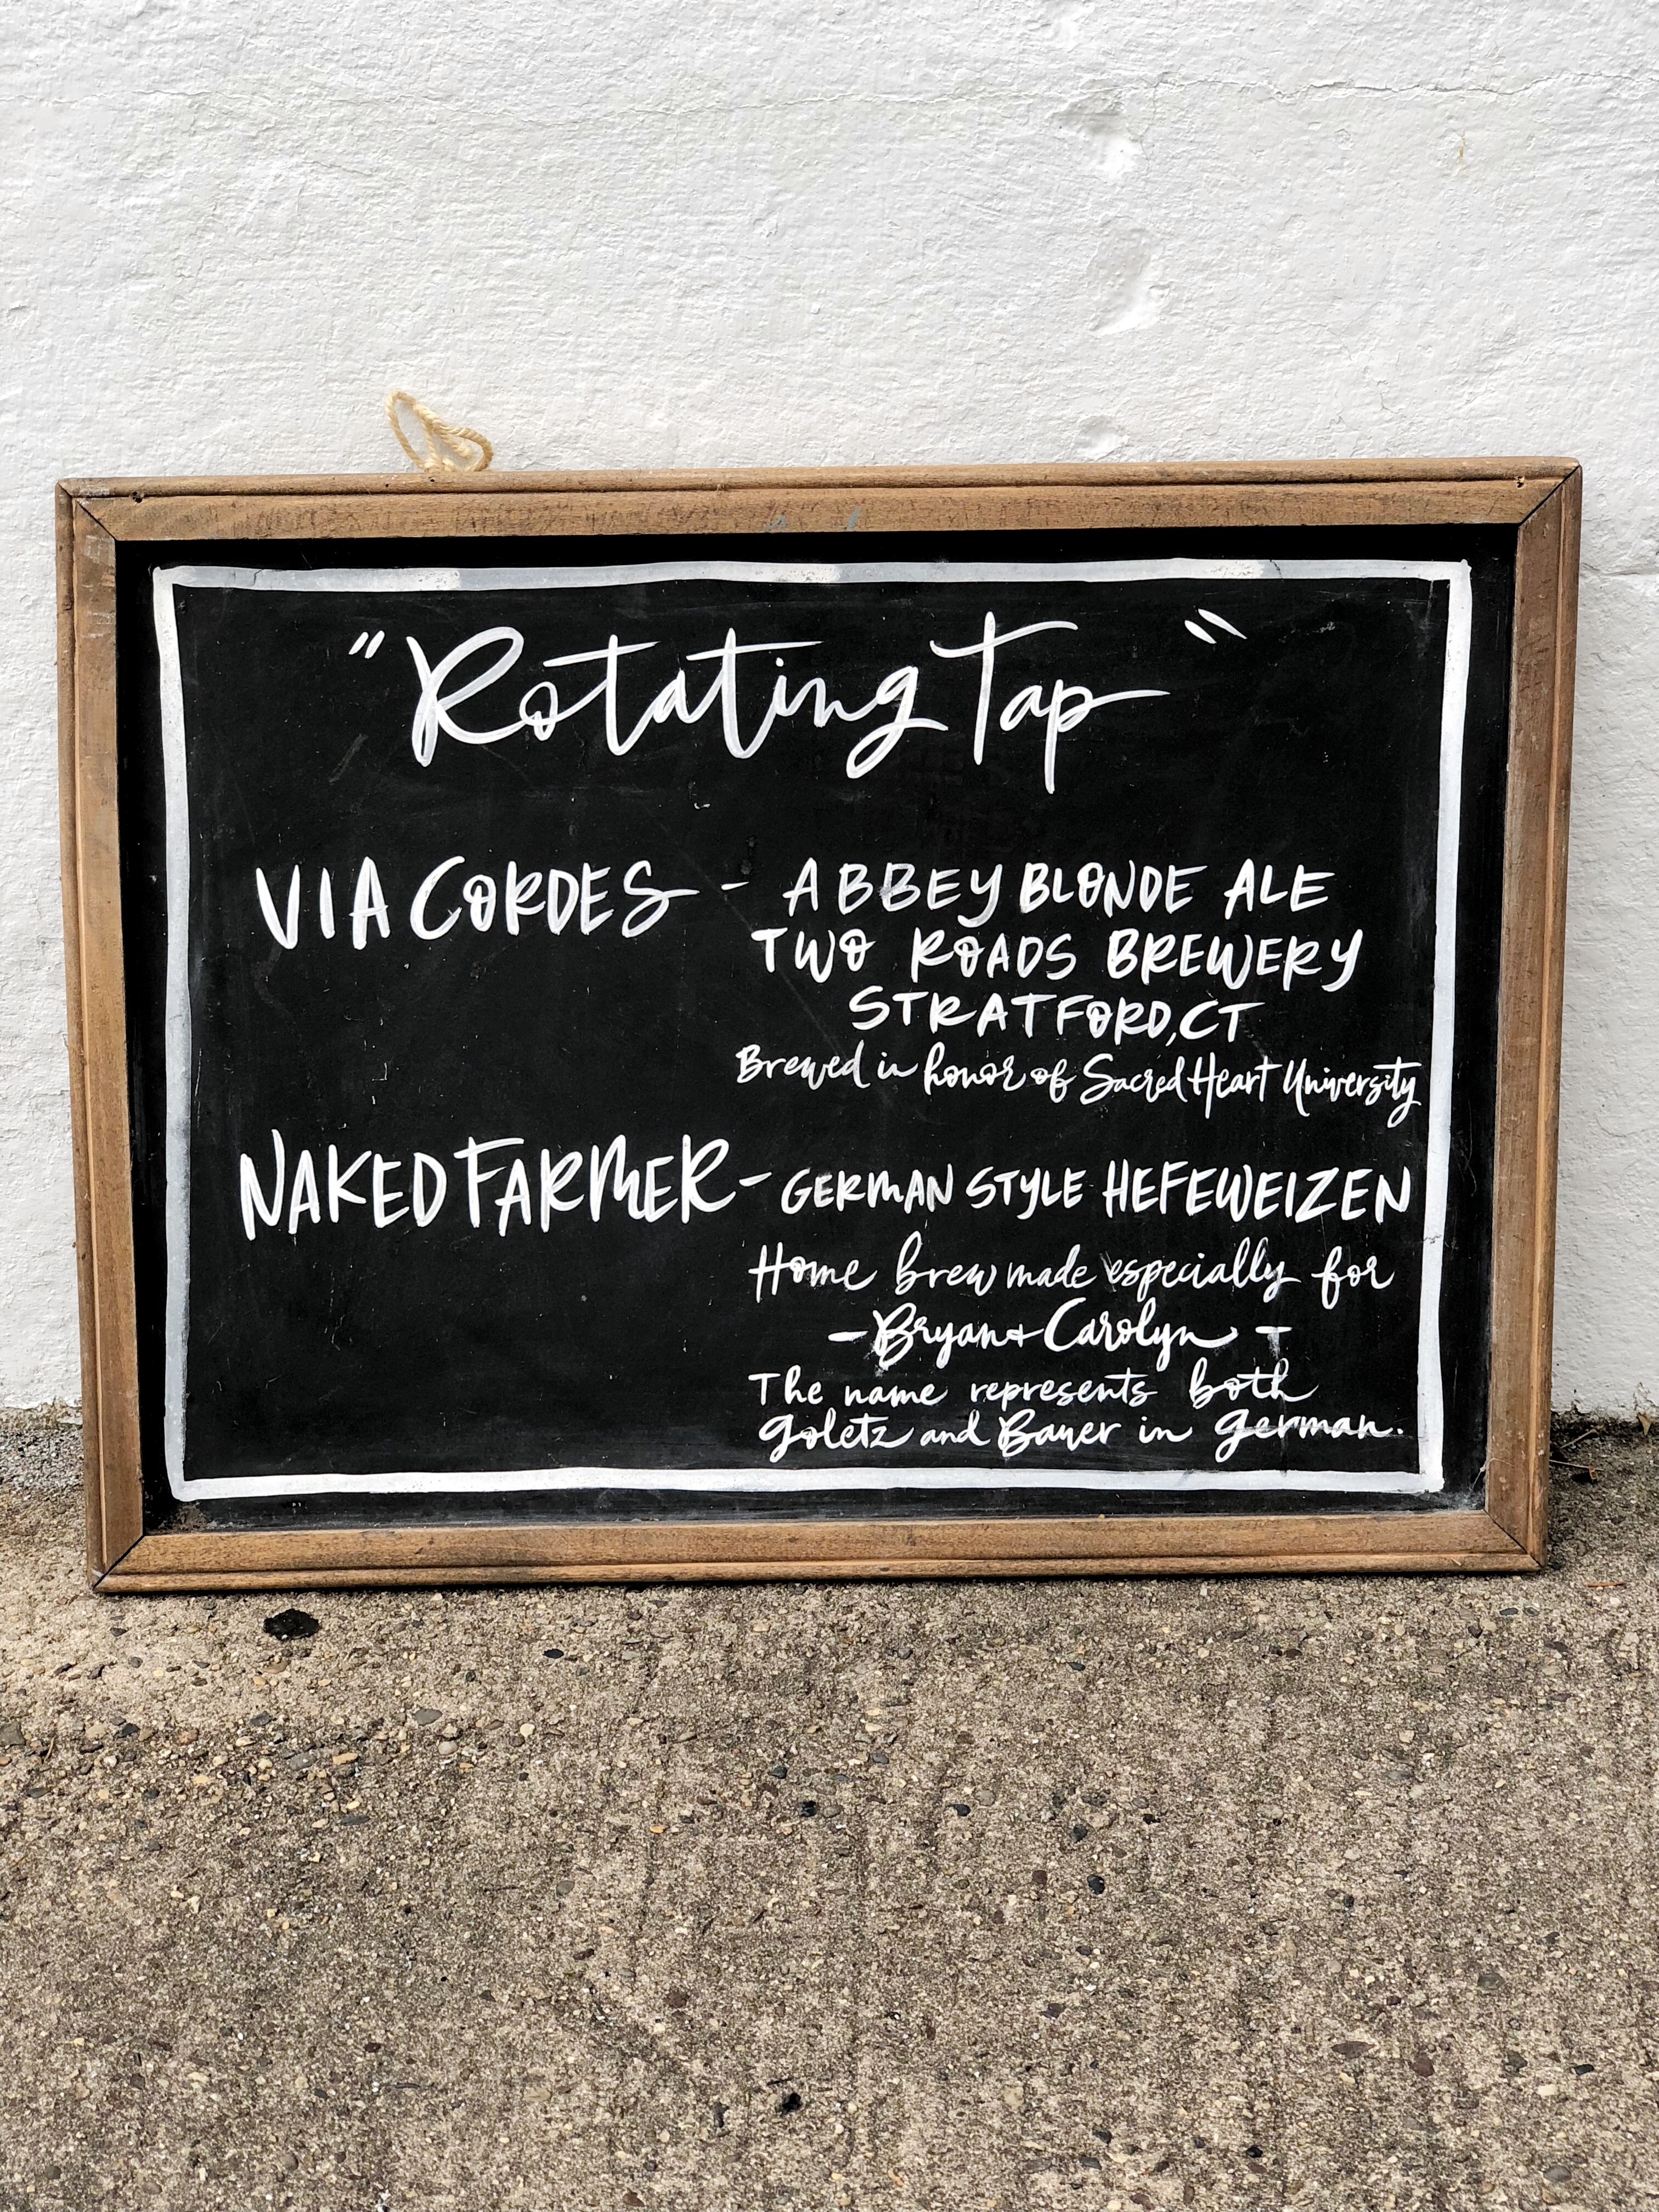 "Rotating Tap"
VIA CORDES - ABBEY BLONDE ALE
TWO ROADS BREWERY
STRATFORD, CT
Brewed in honor of Sacred Heart University
NAKED FARMER - GERMAN STYLE HEFEWEIZEN
Home brew made especially for
- Bryan + Carolyn -
The name represents both
Goletz and Bauer in German.